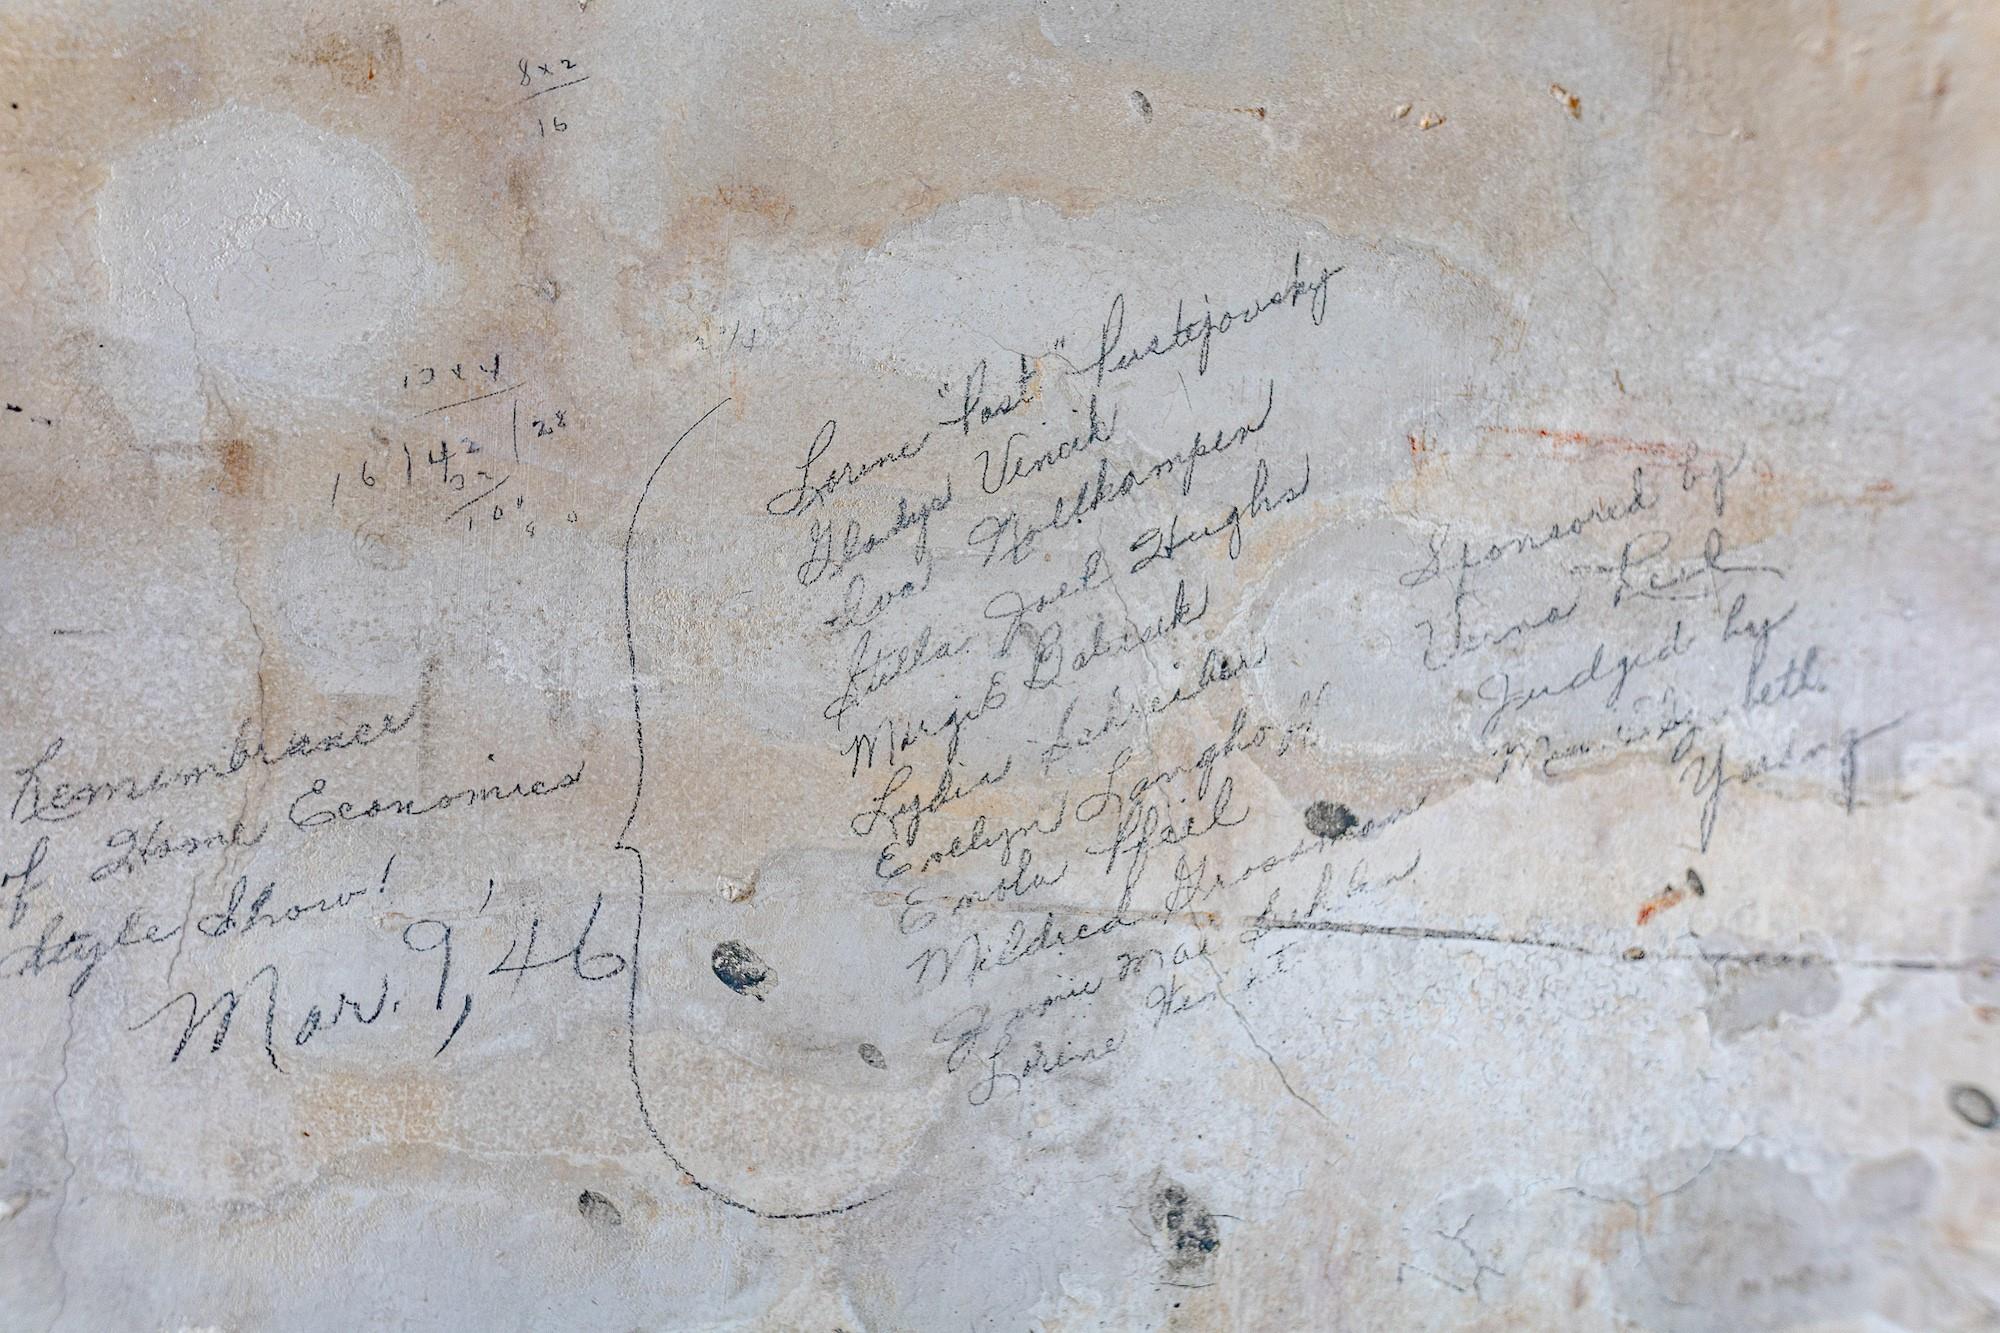 8 x 2
16
Remembrance
of Home Economics
Style Show!
Mar. 9, '46
Lorine "Post" Pustejovsky
Gladys Vincik
Iva Noltkamper
Stella Joel Hughs
Margie Babisak
Lydia Schreiber
Evelyn Langhoff
Enola Pfeil
Mildred Grossman
Mae
Lorine
Sponsored by
Verna
Judged by
Elizabeth
Young